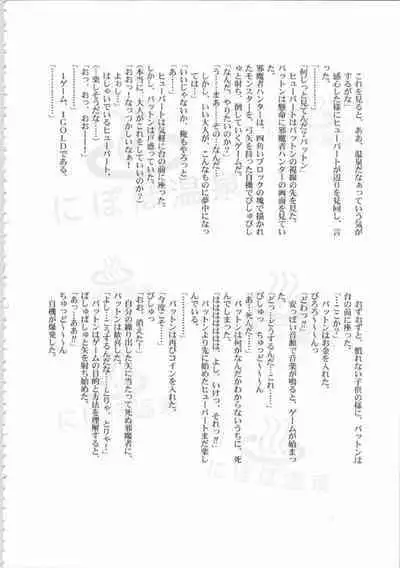 これを見ると、ああ、温泉だなぁっていう気が
するがな」
感心した様にヒューバートが辺りを見回し、言
った。
「………」
「何じっと見てんだ？パットン」
ヒューバートはパットンの視線の先を見た。
パットンは懸命に邪魔者ハンターの画面を見てい
た。
邪魔者ハンターは、四角いブロックの塊で描かれ
たモンスターを、弓矢を持った自機でぴしゅぴし
ゅと射ち、倒していくゲームだ。
「なんだ、やりたいのか？」
「う……まぁ……その……なんだ……」
しかし、いい大人が、こんなものに夢中になっ
ては……
「いいじゃないか、俺もやろっと」
「あ……」
ヒューバートは気軽に台の前に座った。
しかし、パットンは戸惑っていた。
（本当に、大人がこれをしていいのか？）
「おおっ！なっつかしいなぁ！
よぉし！」
はしゃいでいるヒューバート。
（…楽しそうだな…）
「おっ、おっ、おおー！」
１ゲーム、１GOLDである。
おずおずと、慣れない子供の様に、パットンは
台の前に座った。
「…ここか？」
パットンはお金を入れた。
ぴろろ〜〜〜ん
安っぽい音楽が鳴ると、ゲームが始まっ
た。
「どっ…どうするんだ…これ……」
ぴしゅっ　ちゅっど〜〜〜ん
「あっ…死んだ…」
パットンは何がなんだかわからないうちに、死
んでいた。
「はははははは、よし、いけっ、それっ!!」
パットンより先に始めたヒューバートはまだ楽し
んでいる。
パットンは再びコインを入れた。
「今度こそ…」
ぴしゅっ
「おお、消えた！」
自分の繰り出した矢に当たって死ぬ邪魔者に、
パットンは歓喜した。
「…こうするんだな…とりゃ、とりゃ！」
パットンはゲームの目的と方法を理解すると、
ぴしゅぴしゅっと矢を射ち始めた。
「あっ…ああ!!」
ちゅっど〜〜〜ん
自機が爆発した。